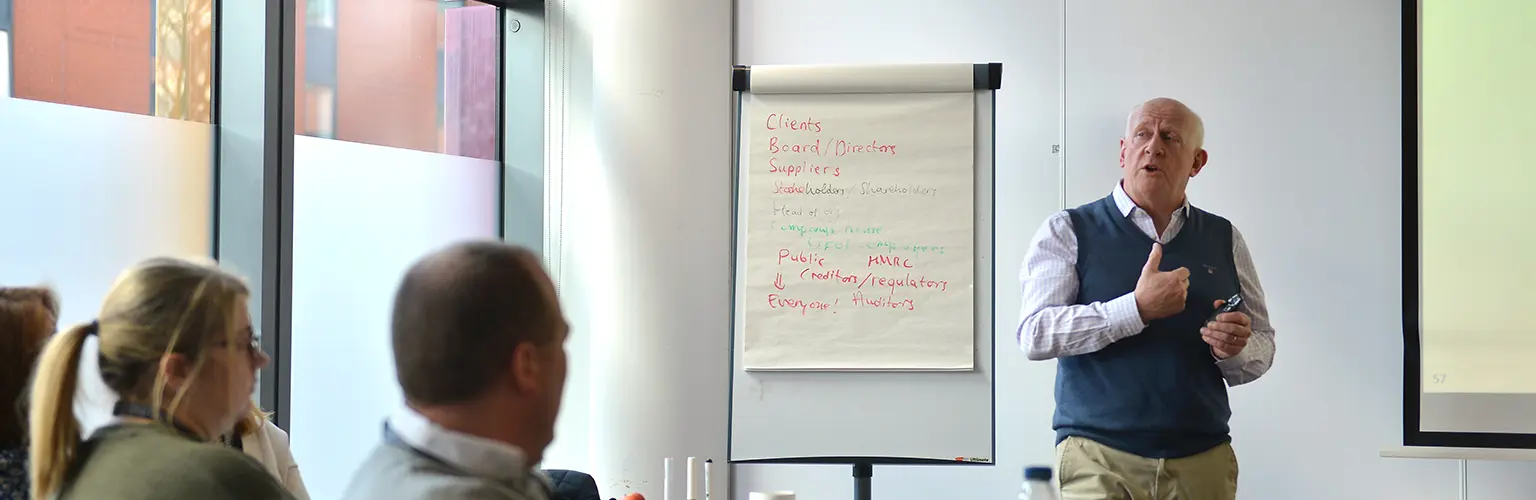 Clients
Board/Directors
Suppliers
Stakeholders/Shareholders
Head of
Company House
Public HMRC
⇓ Creditors/regulators
Everyone! Auditors
57